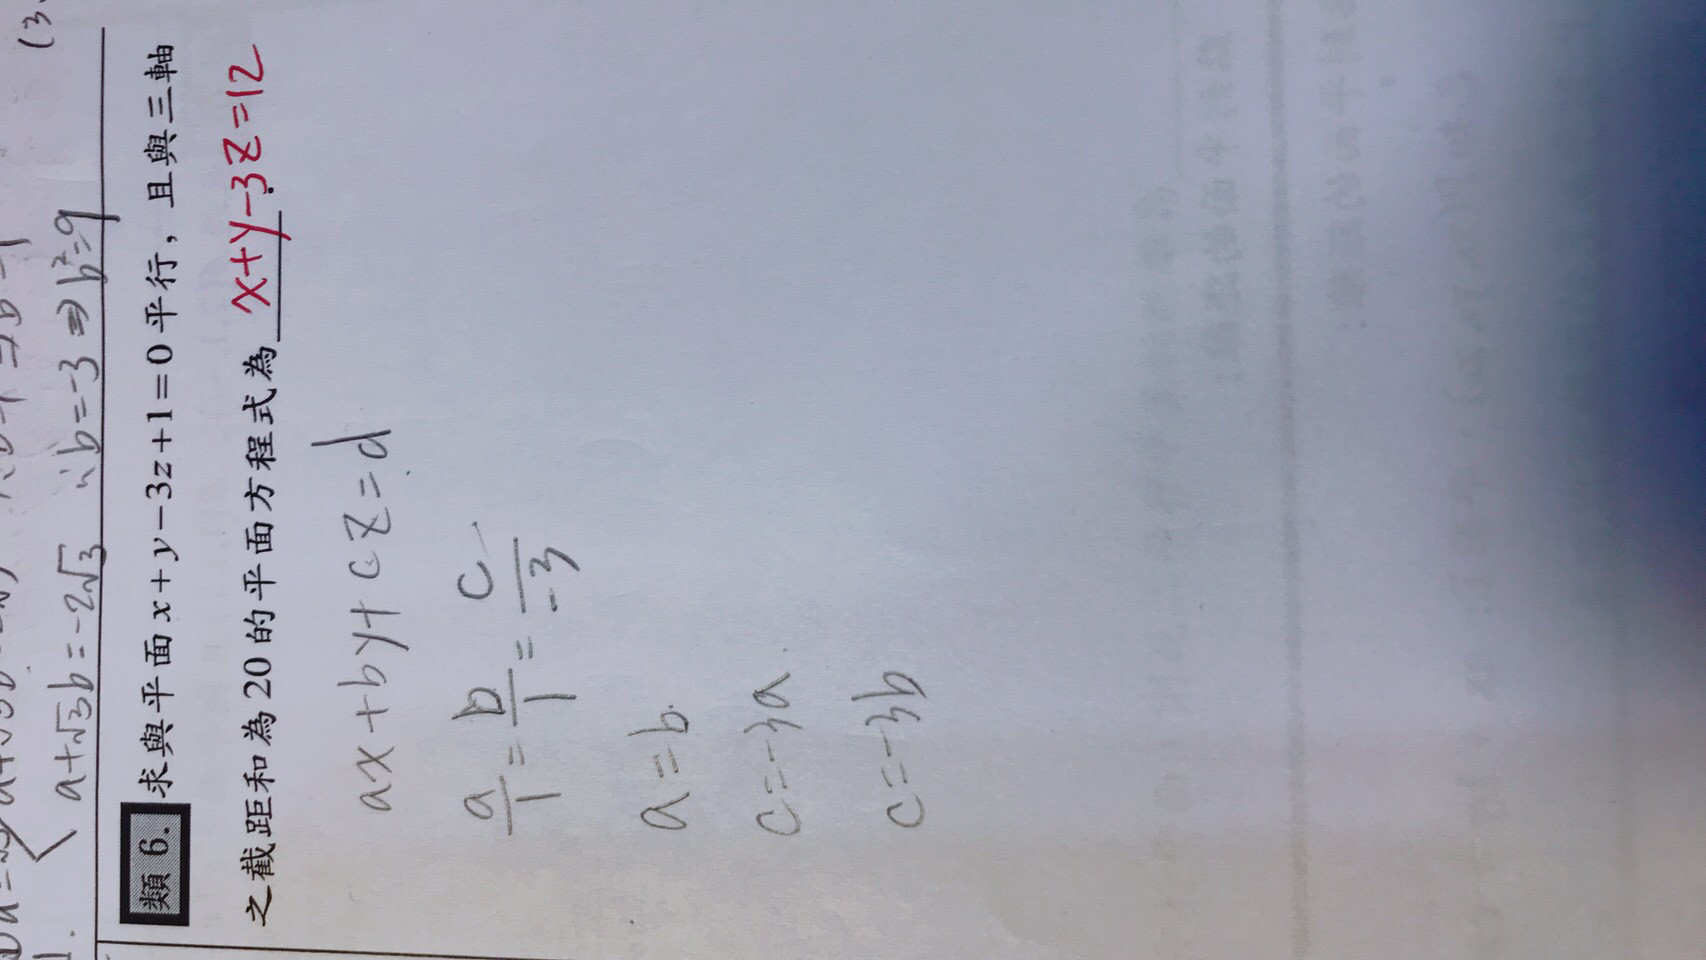 (3.
a+√3b=-2√3 ∴b=-3 ⇒ b²=9
類 6. 求與平面 x+y-3z+1=0 平行，且與三軸
之截距和為 20 的平面方程式為 x+y-3z=12
ax+by+cz=d
a/1=b/1=c/-3
a=b
c=-3a
c=-3b